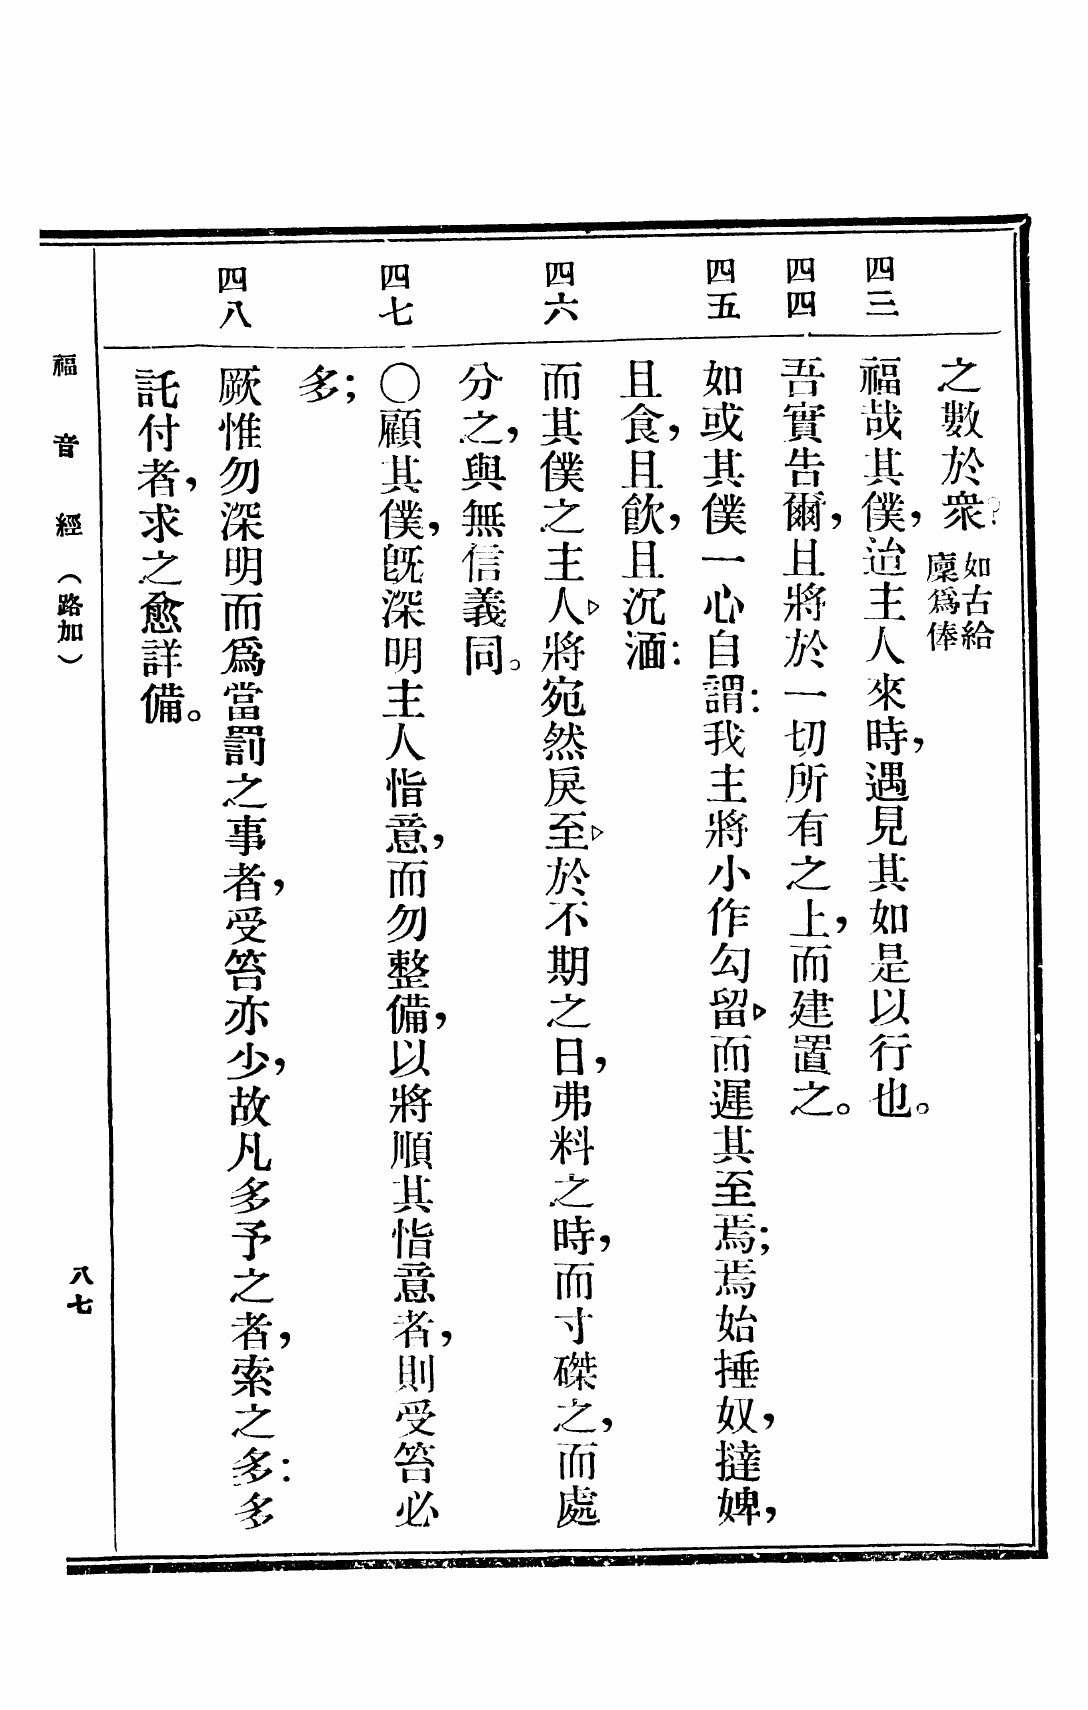 之數於衆?如古給廩爲俸
四三 福哉其僕,迨主人來時,遇見其如是以行也。
四四 吾實告爾,且將於一切所有之上,而建置之。
四五 如或其僕一心自謂:我主將小作勾留▷而遲其至焉;焉始捶奴,撻婢,
且食,且飮,且沉湎:
四六 而其僕之主人▷將宛然戾至▷於不期之日,弗料之時,而寸磔之,而處
分之,與無信義同。
四七 〇顧其僕,旣深明主人恉意,而勿整備,以將順其恉意者,則受笞必
多;
四八 厥惟勿深明而爲當罰之事者,受笞亦少,故凡多予之者,索之多:多
託付者,求之愈詳備。
福音經(路加)
八七